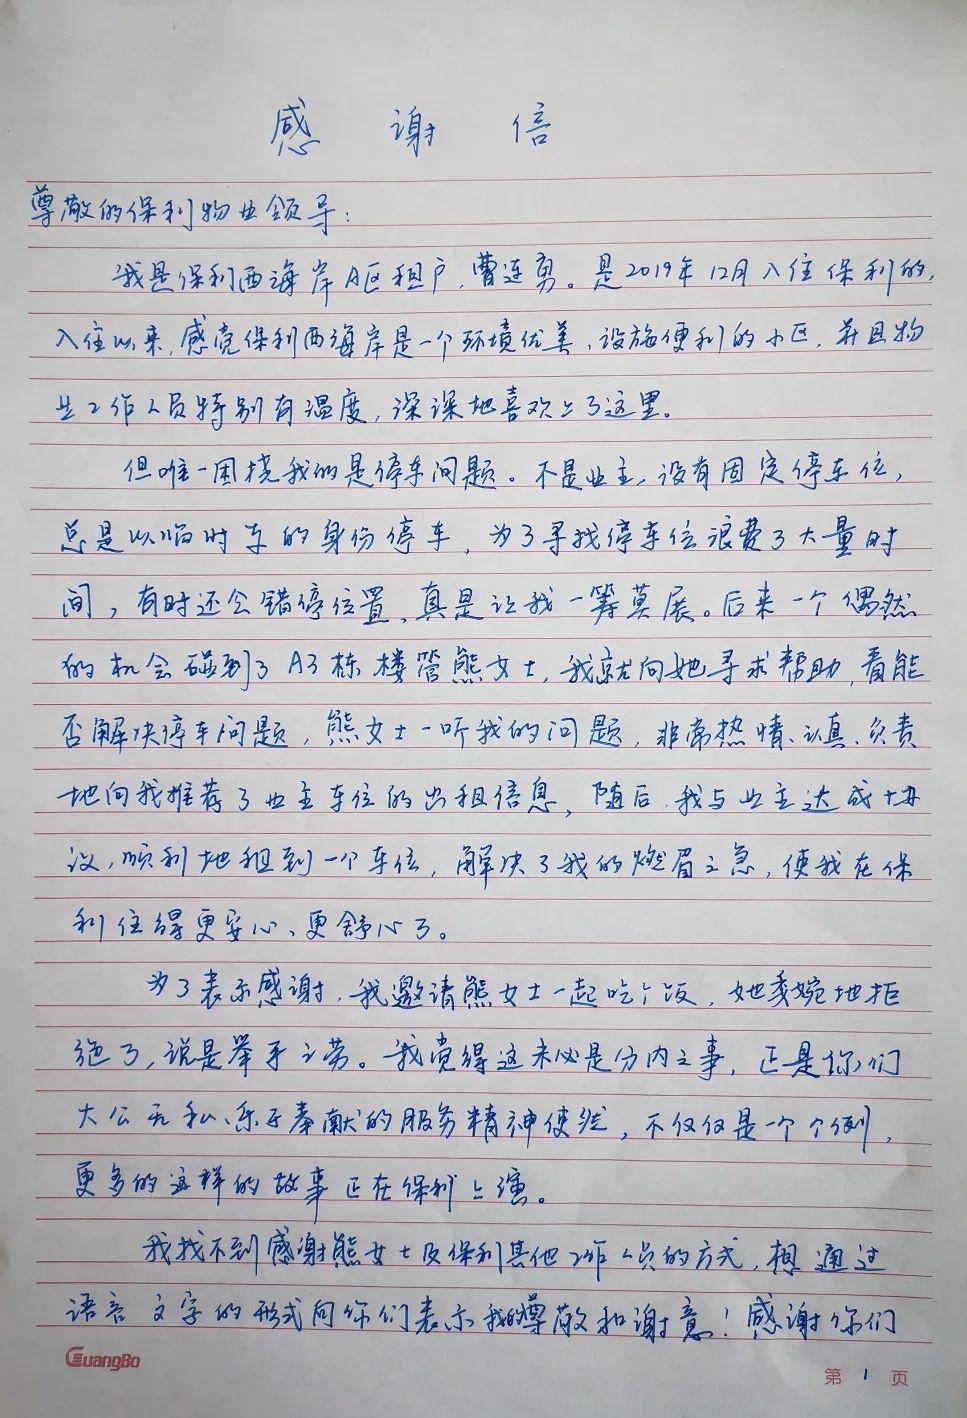 感谢信
尊敬的保利物业领导：
我是保利西海岸A区租户，曹连勇。是2019年12月入住保利的，
入住以来，感觉保利西海岸是一个环境优美、设施便利的小区，并且物
业工作人员特别有温度，深深地喜欢上了这里。
但唯一困挠我的是停车问题。不是业主，没有固定停车位，
总是以临时车的身份停车，为了寻找停车位浪费了大量时
间，有时还会错停位置，真是让我一筹莫展。后来一个偶然
的机会碰到了A3栋楼管熊女士，我就向她寻求帮助，看能
否解决停车问题，熊女士一听我的问题，非常热情、认真、负责
地向我推荐了业主车位的出租信息，随后，我与业主达成协
议，顺利地租到一个车位，解决了我的燃眉之急，使我在保
利住得更安心、更舒心了。
为了表示感谢，我邀请熊女士一起吃个饭，她委婉地拒
绝了，说是举手之劳。我觉得这未必是分内之事，正是你们
大公无私、乐于奉献的服务精神使然，不仅仅是一个个例，
更多的这样的故事正在保利上演。
我找不到感谢熊女士及保利其他工作人员的方式，想通过
语言文字的形式向你们表示我的尊敬和谢意！感谢你们
GuangBo
第 1 页